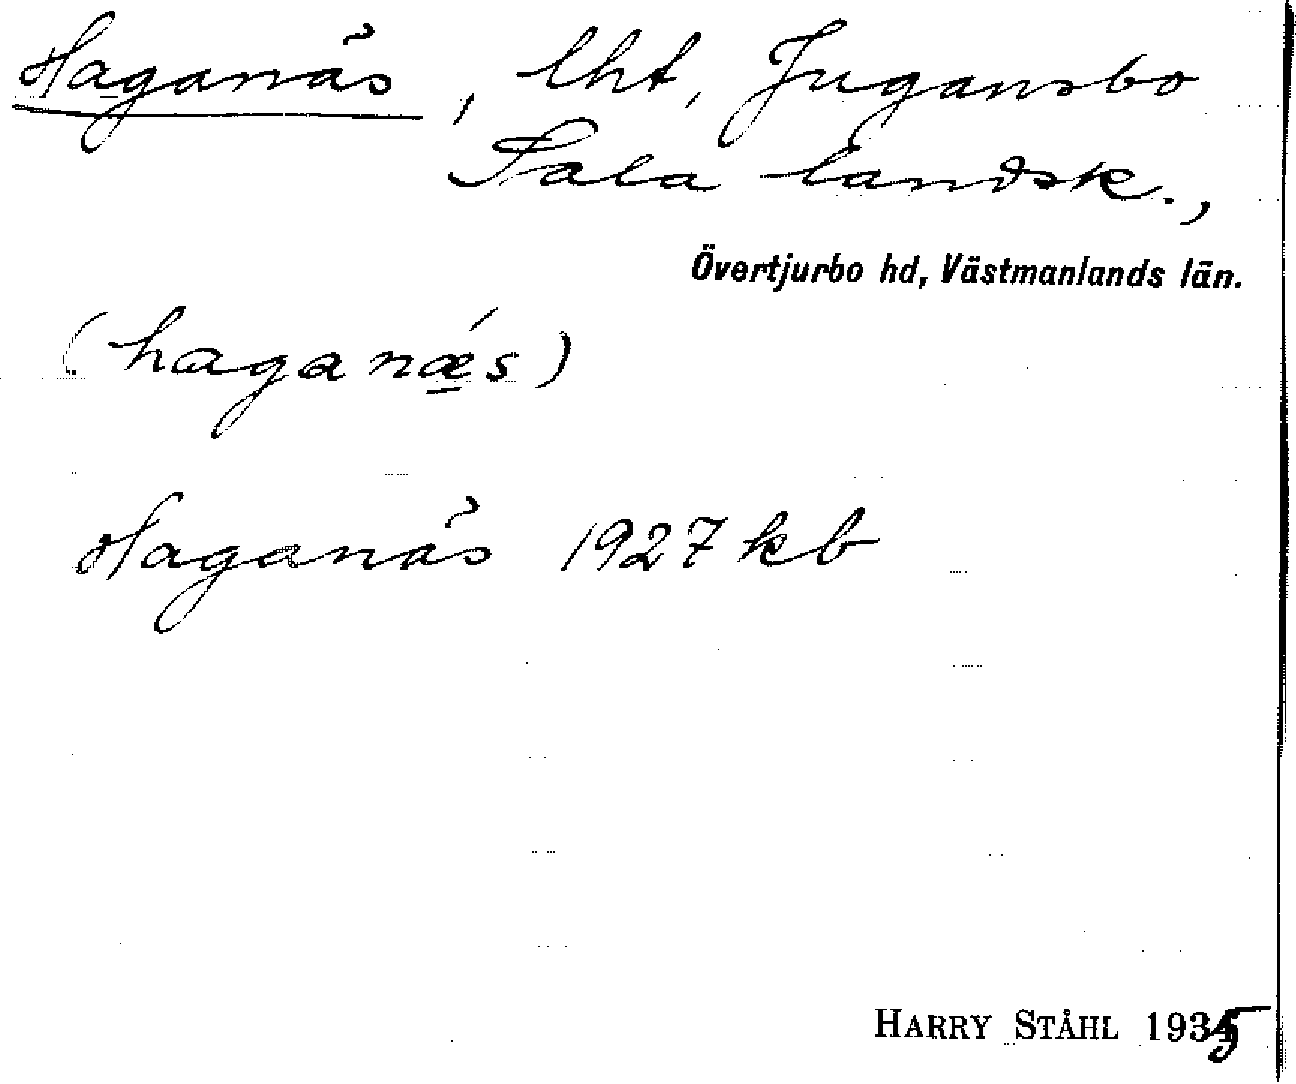 Haganäs, lht, Jugansbo
Sala landsk.,
Övertjurbo hd, Västmanlands län.
(haganǽs)
Haganäs 1927 kb
HARRY STÅHL 1935